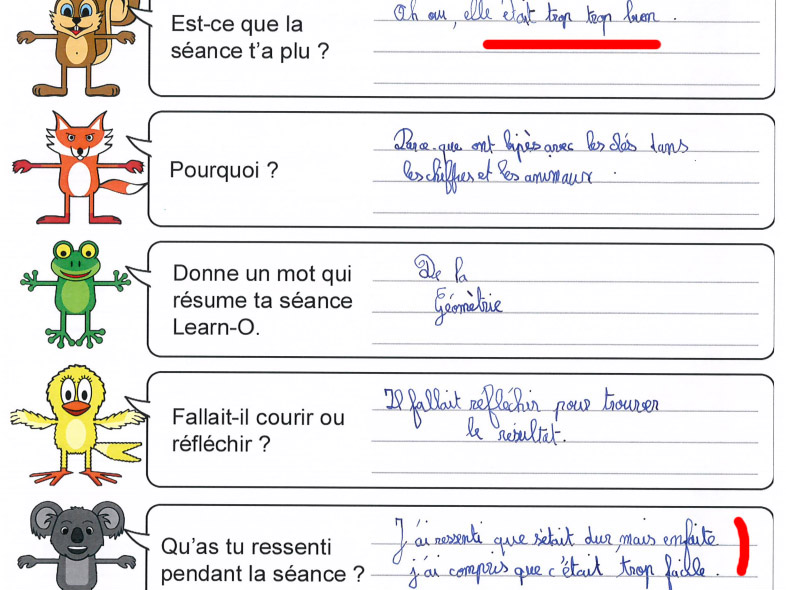 Est-ce que la
séance t'a plu ?
Oh oui, elle était trop trop bien.
Pourquoi ?
Parce-que ont bipès avec les clés dans
les chiffres et les animaux.
Donne un mot qui
résume ta séance
Learn-O.
De la
Géomètrie
Fallait-il courir ou
réfléchir ?
Il fallait réfléchir pour trouver
le résultat.
Qu'as tu ressenti
pendant la séance ?
J'ai ressenti que s'était dur, mais enfaite
j'ai compris que c'était trop facile.